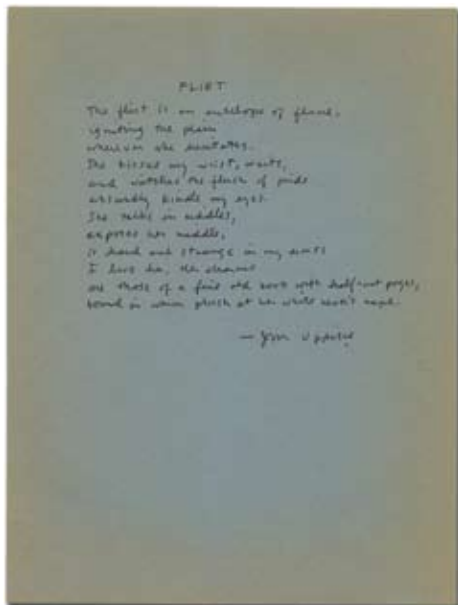 FLIRT
The flirt is an antelope of flame,
igniting the plain
wherever she hesitates.
She kisses my wrist, waits,
and watches the flush of pride
absurdly kindle my eyes.
She talks in riddles,
exposes her middle,
is hard and strange in my arms
I love her. Her charms
are those of a fine old book with half-cut pages,
bound in warm plush at her white neck's nape.
— John Updike